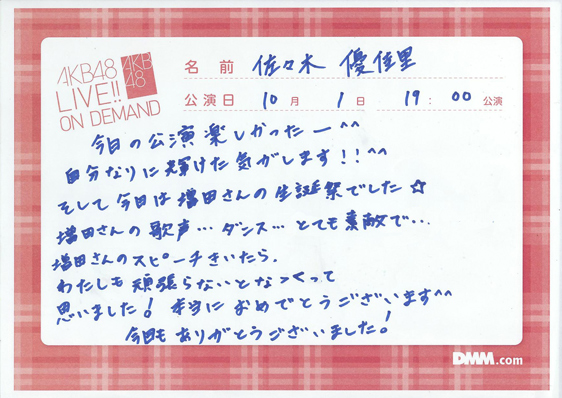 AKB48
LIVE!!
ON DEMAND
AKB
48
名前 佐々木 優佳里
公演日 10月 1日 19:00公演
今日の公演楽しかったー^^
自分なりに輝けた気がします!!^^
そして今日は増田さんの生誕祭でした☆
増田さんの歌声…ダンス…とても素敵で…
増田さんのスピーチきいたら、
わたしも頑張らないとなっくって
思いました! 本当におめでとうございます^^
今日もありがとうございました!
DMM.com